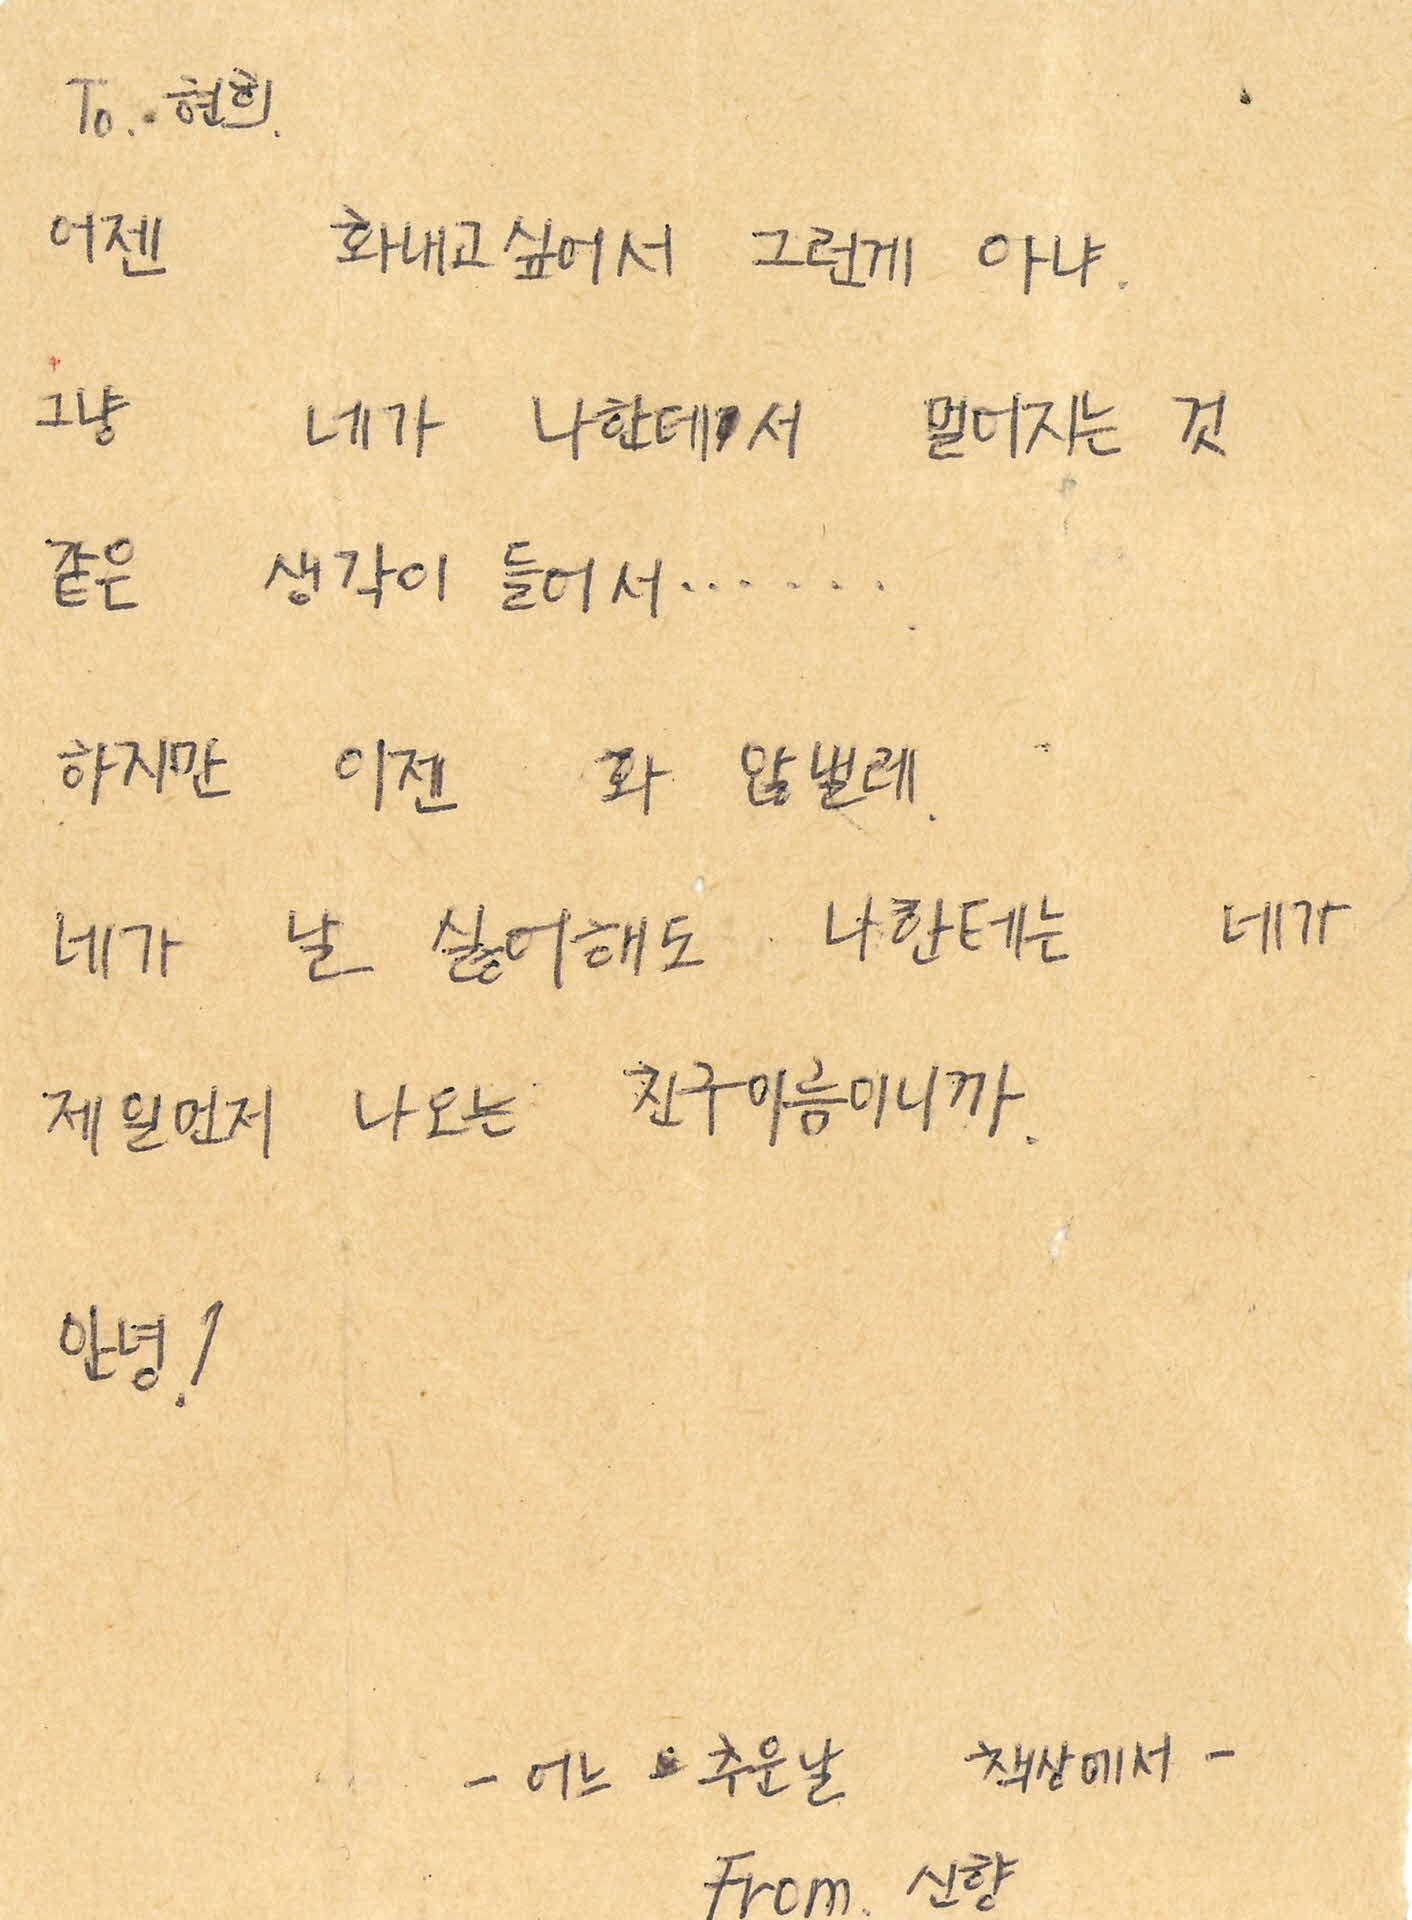 To. 현희.
어젠 화내고싶어서 그런게 아냐.
그냥 네가 나한테서 멀어지는 것
같은 생각이 들어서.......
하지만 이젠 화 않낼레.
네가 날 싫어해도 나한테는 네가
제일먼저 나오는 친구이름이니까.
안녕!
- 어느 추운날 책상에서 -
From. 신향